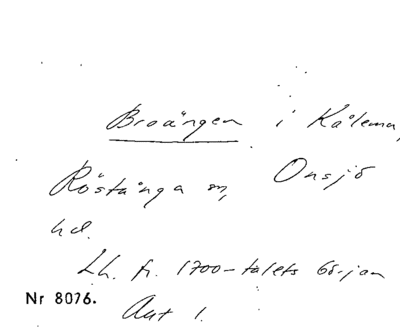 Broängen i Kålema,
Röstånga sn, Onsjö
hd.
Lh. fr. 1700-talets början
Nr 8076.
Akt 1.